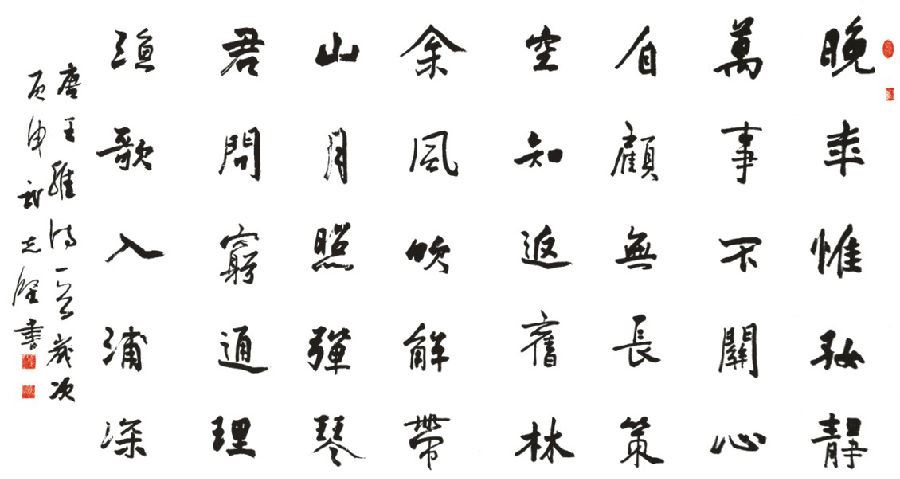 晚年惟好靜
萬事不關心
自顧無長策
空知返舊林
松風吹解帶
山月照彈琴
君問窮通理
漁歌入浦深
唐王維詩一首歲次
丙申 志堅書